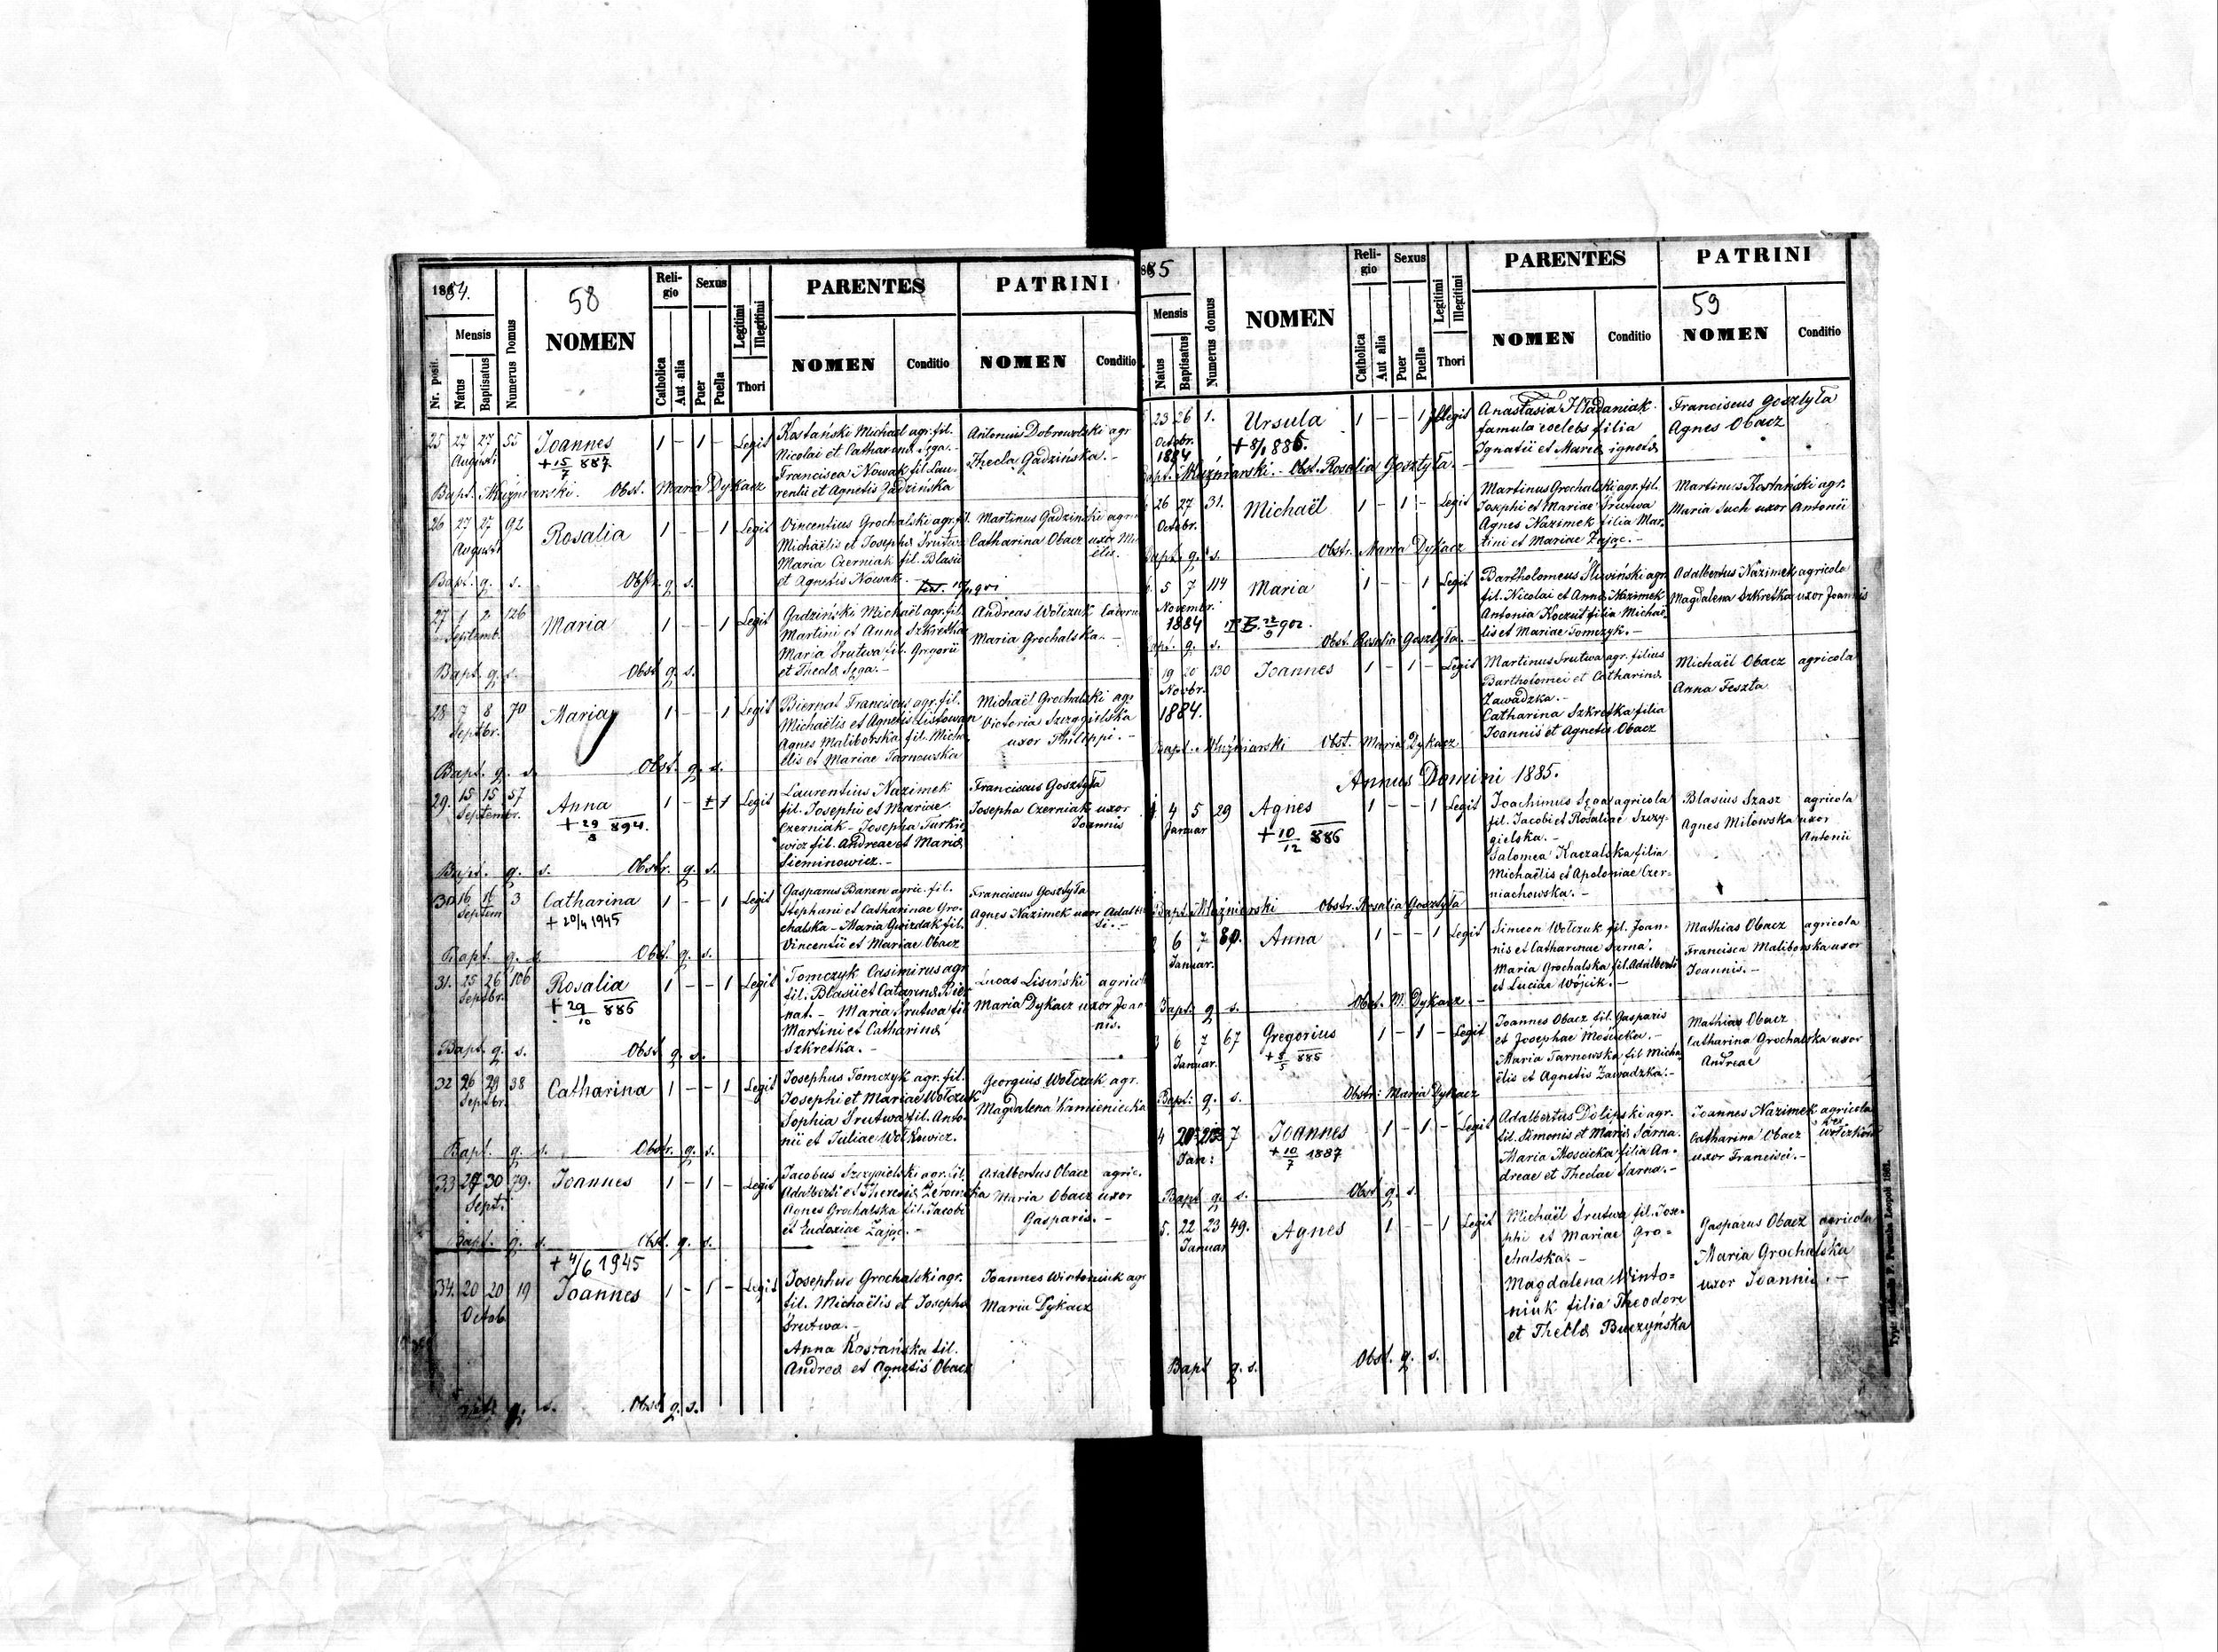 1884.
58
Nr. posit.
Mensis
Natus
Baptisatus
Numerus Domus
NOMEN
Religio
Catholica
Aut alia
Sexus
Puer
Puella
Legitimi
Illegitimi
Thori
PARENTES
NOMEN
Conditio
PATRINI
NOMEN
Conditio
25 27 27 55 Joannes 1 - 1 - Legit
Augusti
+ 15/7 887.
Kostański Michael agr. fil.
Nicolai et Catharina Sęga. -
Francisca Nowak fil. Lau-
rentii et Agnetis Gadzińska
Antonius Dobrowolski agr
Thecla Gadzińska. -
Bapt. Muźniarski. Obst. Maria Dykacz
26 27 27 92 Rosalia 1 - - 1 Legit
August
Vincentius Grochalski agr. fil.
Michaëlis et Josepha Srutwa
Maria Czerniak fil. Blasii
et Agnetis Nowak
Martinus Gadzinski agri
Catharina Obacz uxor Mi
ëlis.
Bapt. q. s. Obst. q. s.
27 1 2 126 Maria 1 - - 1 Legit
Septemb.
Gadziński Michaël agr. fil.
Martini et Anna Szkretka
Maria Srutwa fil. Gregorii
et Thecla Sęga. -
Andreas Wołczuk
Maria Grochalska. -
Bapt. q. s. Obst q. s.
28 7 8 70 Maria 1 - - 1 Legit
Septbr.
Biernat Franciscus agr. fil.
Michaëlis et Agnetis Listowan
Agnes Maliborska fil. Micha
ëlis et Mariae Tarnowska
Michaël Grochalski agr
Victoria Szczygielska
uxor Philippi. -
Bapt. q. s. Obst. q. s.
29. 15 15 57 Anna 1 - 1 Legit
Septembr.
+ 29/8 894.
Laurentius Nazimek
fil. Josephi et Mariae
Czerniak - Josepha Turkie
wicz fil. Andreae et Maria
Sieminowicz. -
Franciscus Gosztyła
Josepha Czerniak uxor
Joannis
Bapt. q. s. Obstr. q. s.
30 16 17 3 Catharina 1 - - 1 Legit
Septem
+ 20/4 1945
Gasparus Baran agric. fil.
Stephani et Catharinae Gro-
chalska - Maria Gwizdak fil.
Vincentii et Mariae Obacz
Franciscus Gosztyła
Agnes Nazimek uxor Adalber
ti. -
Bapt. q. s. Obst. q. s.
31. 25 26 106 Rosalia 1 - - 1 Legit
Septbr.
+ 29/10 886
Tomczyk Casimirus agr
fil. Blasii et Catarina Bier
nat. - Maria Srutwa fil
Martini et Catharina
Szkretka. -
Lucas Lisiński agricol
Maria Dykacz uxor Joan
nis.
Bapt. q. s. Obst q. s.
32 26 29 38 Catharina 1 - - 1 Legit
Septbr.
Josephus Tomczyk agr. fil.
Josephi et Mariae Wołczuk
Sophia Srutwa fil. Anto-
nii et Juliae Wołkowicz.
Georgius Wołczuk agr.
Magdalena Kamieniecka
Bapt. q. s. Obstr. q. s.
33 27 30 79. Joannes 1 - 1 - Legit
Sept.
Jacobus Szczygielski agr. fil.
Adalberti et Theresia Żeromska
Agnes Grochalska fil. Jacobi
et Eudoxiae Zając. -
Adalbertus Obacz agric.
Maria Obacz uxor
Gasparis. -
Bapt. q. s. Obst. q. s.
+ 4/6 1945
34. 20 20 19 Joannes 1 - 1 - Legit
Octob
Josephus Grochalski agr.
fil. Michaëlis et Josepha
Srutwa. -
Anna Kostańska fil.
Andrea et Agnetis Obacz
Joannes Wintoniuk agr
Maria Dykacz
q. s. Obst q. s.
85
Mensis
Natus
Baptisatus
Numerus domus
NOMEN
Religio
Catholica
Aut alia
Sexus
Puer
Puella
Legitimi
Illegitimi
Thori
PARENTES
NOMEN
Conditio
PATRINI
59
NOMEN
Conditio
23 26 1. Ursula 1 - - 1 Illegit
Octobr.
1884
+ 8/1 886.
Anastasia Hładaniak
famula coelebs filia
Ignatii et Maria ignota
Franciscus Gosztyła
Agnes Obacz
Bapt. Muźniarski. - Obst. Rosalia Gosztyła. -
26 27 31. Michaël 1 - 1 - Legit
Octobr.
Martinus Grochalski agr. fil.
Josephi et Mariae Srutwa
Agnes Nazimek filia Mar-
tini et Mariae Zając. -
Martinus Kostański agr.
Maria Such uxor Antonii
Bapt. q. s. Obstr. Maria Dykacz
5 7 114 Maria 1 - - 1 Legit
Novembr.
1884
Bartholomeus Śliwiński agr
fil. Nicolai et Anna Nazimek
Antonia Koczut filia Michaë-
lis et Mariae Tomczyk. -
Adalbertus Nazimek agricola
Magdalena Szkretka uxor Joannis
Bapt. q. s. Obst. Rosalia Gosztyła. -
19 20 130 Joannes 1 - 1 - Legit
Novbr.
1884.
Martinus Srutwa agr. filius
Bartholomei et Catharina
Zawadzka. -
Catharina Szkretka filia
Joannis et Agnetis Obacz
Michaël Obacz agricola
Anna Feszta
Bapt. Muźniarski Obst. Maria Dykacz
Annus Domini 1885.
4 5 29 Agnes 1 - - 1 Legit
Januar
+ 10/12 886
Joachimus Sęga agricola
fil. Jacobi et Rosaliae Szczy-
gielska. -
Salomea Kaczalska filia
Michaëlis et Apoloniae Czer-
niachowska. -
Blasius Szasz agricola
Agnes Milowska uxor
Antonii
Bapt Muźniarski Obstr. Rosalia Gosztyła
6 7 80. Anna 1 - - 1 Legit
Januar.
Simeon Wołczuk fil. Joan-
nis et Catharinae Sarna.
Maria Grochalska fil. Adalberti
et Luciae Wójcik. -
Mathias Obacz agricola
Francisca Maliborska uxor
Joannis. -
Bapt. q s. Obst. M. Dykacz -
6 7 67 Gregorius 1 - 1 - Legit
Januar.
+ 8/5 885
Joannes Obacz fil. Gasparis
et Josephae Mościcka. -
Maria Tarnowska fil Micha
ëlis et Agnetis Zawadzka. -
Mathias Obacz
Catharina Grochalska uxor
Andreae
Bapt. q. s. Obstr: Maria Dykacz
4 7 Joannes 1 - 1 - Legit
Jan:
+ 10/7 1887
Adalbertus Dolipski agr.
fil. Simonis et Maria Sarna.
Maria Mościcka filia An-
dreae et Theclae Sarna. -
Joannes Nazimek agricola
Catharina Obacz
uxor Francisci. -
Bapt q. s. Obst q. s.
5. 22 23 49. Agnes 1 - - 1 Legit
Januar
Michaël Srutwa fil. Jose-
phi et Mariae Gro-
chalska. -
Magdalena Winto-
niuk filia Theodori
et Thecla Buczyńska
Gasparus Obacz agricola
Maria Grochalska
uxor Joannis. -
Bapt q. s. Obst. q. s.